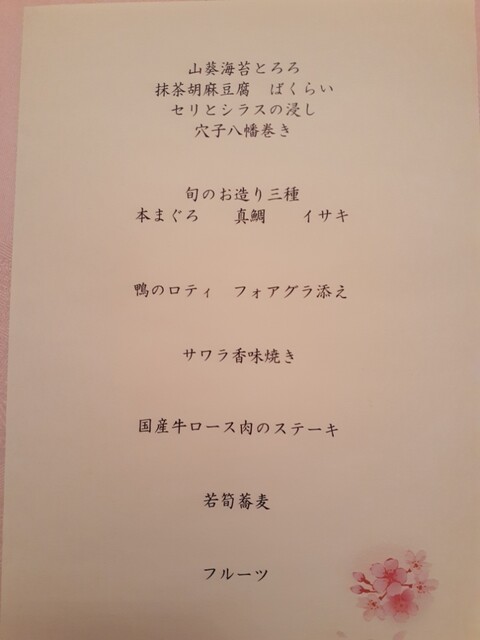 山葵海苔とろろ
抹茶胡麻豆腐　ばくらい
セリとシラスの浸し
穴子八幡巻き
旬のお造り三種
本まぐろ　真鯛　イサキ
鴨のロティ　フォアグラ添え
サワラ香味焼き
国産牛ロース肉のステーキ
若筍蕎麦
フルーツ